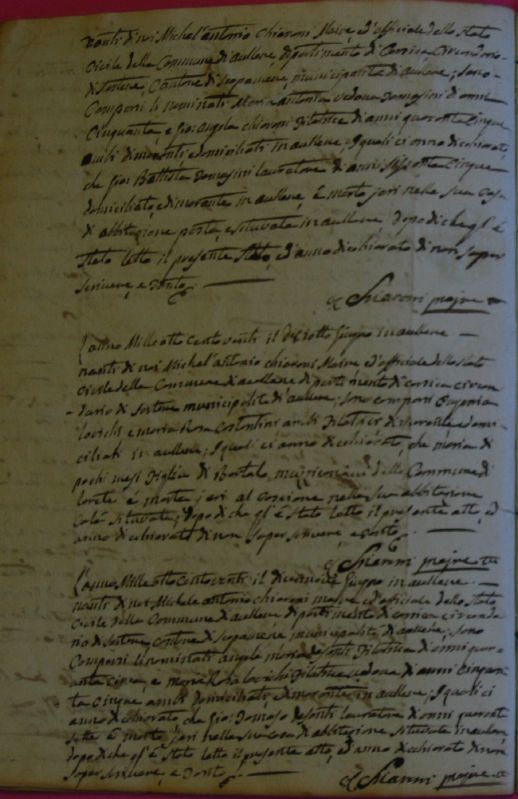 nanti di noi Michel'antonio Chiaroni Maire ed'officiale dello Stato
Civile della Commune di aullene, dipartimento di Corsica Circondario
di Sartene, Cantone di Scopamene, municipalità di aullene; sono
Comparsi li nominati Maria antonia vedova Tomasini d'anni
Cinquanta, e Gio: angela chiaroni filatrice di anni quaranta Cinque
ambi dimoranti e domiciliati in aullene; I quali ci anno dichiarato,
che Gio: Battista Tomasini lauratore di anni Cinque
domiciliato, e dimorante in aullene, è morto jeri nella sua Casa
di abbitazione posta, e situvata in aullene; Dopo di che gl'è
stato letto il presente atto, ed'anno dichiarato di non saper
scrivere, e
Chiaroni majre
L'anno Mille otto cento venti il dieciotto Giugno in aullene
nanti di noi Michel'antonio chiaroni Maire, ed'officiale dello stato
civile della Commune di aullene dipartimento di corsica circon
dario di Sartene municipalità di aullene; sono comparsi Eugenia
e maria Rosa Costantini ambi filatrici dimorante e domi
ciliati in aullene; I quali ci anno dichiarato, che maria di
pochi mesi figlia di Bartolo della Commune di
è morta jeri al nella sua abbitazione
colà situvata; dopo di che gl'è stato letto il presente atto, ed
anno dichiarato di non saper scrivere, e
Chiaroni majre
L'anno Mille otto Cento venti il diecinove Giugno in aullene
nanti di noi Michele antonio chiaroni maire ed'officiale dello Stato
Civile della Commune di aullene dipartimento di corsica circonda
rio di Sartene cantone di scopamene municipalità di aullene; sono
Comparsi li nominati angela maria filatrice di anni quar
anta Cinque, e maria filatrice vedova di anni Cinquan
ta Cinque ambi domiciliati, e dimorante in aullene; I quali ci
anno dichiarato che Gio: Tomaso lauratore d'anni quarant
sette è morto jeri nella sua Casa di abbitazione situvata in aullene,
dopo di che gl'è stato letto il presente atto, ed'anno dichiarato di non
saper scrivere, e
Chiaroni majre